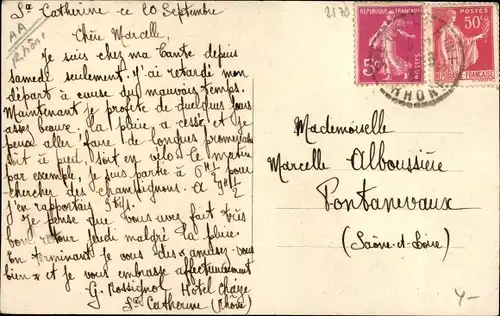 Ste Catherine ce 20 Septembre
Chère Marcelle,
Je suis chez ma Tante depuis
samedi seulement. J'ai retardé mon
départ à cause du mauvais temps.
Maintenant je profite de quelques jours
assez beaux; la pluie a cessé et je
peux aller faire de longues promenades
soit à pied, soit en vélo. Ce matin
par exemple, je suis partie à 6h 1/2 pour
chercher des champignons. A 9h 1/2
j'en rapportais
Je pense que vous avez fait très
bon retour jeudi malgré la pluie.
En terminant je vous dis "amusez-vous
bien" et je vous embrasse affectueusement
G. Rossignol Hôtel
Ste Catherine (Rhône)
AA
RHÔNE
2170
5c
POSTES
50c
REPUBLIQUE FRANÇAISE
RHONE
Mademoiselle
Marcelle Alboussière
Pontanevaux
(Saône-et-Loire)
4-